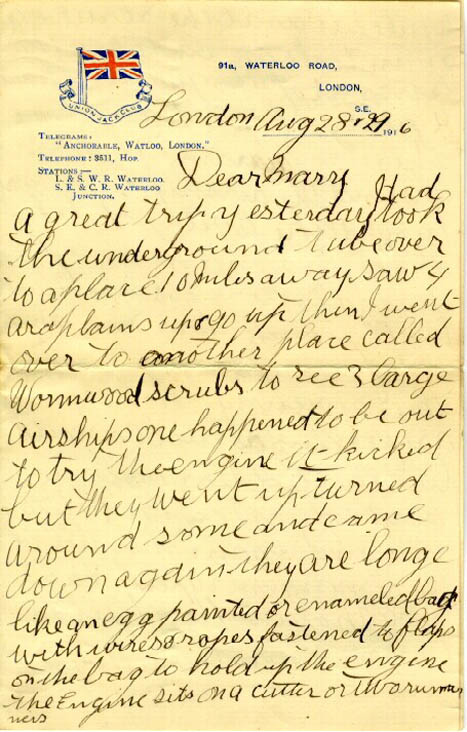 UNION JACK CLUB
91a, WATERLOO ROAD,
LONDON,
S.E.
London Aug 28 & 29 1916
TELEGRAMS:
"ANCHORABLE, WATLOO, LONDON."
TELEPHONE: 3511, HOP.
STATIONS:—
L. & S. W. R. WATERLOO.
S. E. & C. R. WATERLOO
JUNCTION.
Dear Marry Had
a great trip yesterday took
the underground tube over
to a place 10 miles away saw 4
araplains up & go up then I went
over to another place called
Wormwood scrubs to see 3 large
airships one happened to be out
to try the engine it kicked
but they went up turned
around some and came
down again they are longe
like an egg painted or enameled bag
with wires & ropes fastened to flaps
on the bag to hold up the engine
the Engine sits on a cutter or two runners